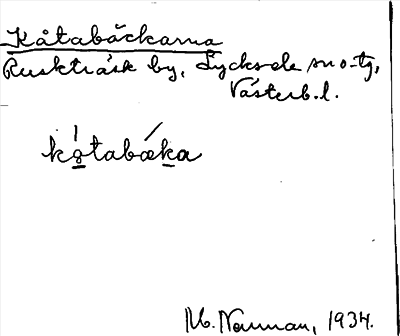 Kåtabäckarna
Ruskträsk by, Lycksele sn o. tg,
Västerb. l.
kåtabæka
M. Norman, 1934.